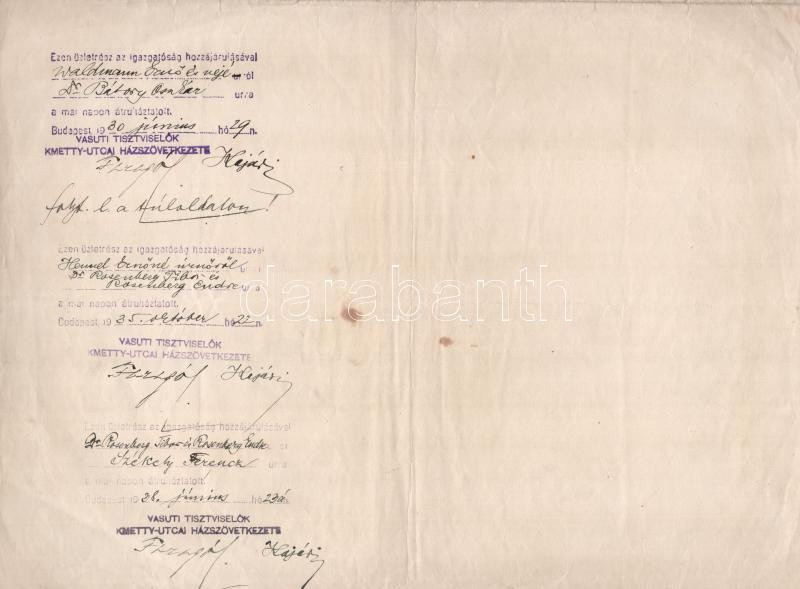 Ezen üzletrész az igazgatóság hozzájárulásával
Waldmann Ernő és neje úrról
Dr. Bátory Oszkár úrra
a mai napon átruháztatott.
Budapest, 1930 június hó 29 n.
VASUTI TISZTVISELŐK
KMETTY-UTCAI HÁZSZÖVETKEZETE
Faragó Hajári
folyt. l. a túloldalon!
Ezen üzletrész az igazgatóság hozzájárulásával
Ernőné úrnőről
Dr. Rosenberg Tibor és
Rosenberg Endre úrra
a mai napon átruháztatott.
Budapest, 1935. október hó 22 n.
VASUTI TISZTVISELŐK
KMETTY-UTCAI HÁZSZÖVETKEZETE
Faragó Hajári
Ezen üzletrész az igazgatóság hozzájárulásával
Dr. Rosenberg Tibor és Rosenberg Endre
Székely Ferencz úrra
a mai napon átruháztatott.
Budapest, 1938. június hó 23án.
VASUTI TISZTVISELŐK
KMETTY-UTCAI HÁZSZÖVETKEZETE
Faragó Hajári
darabanth